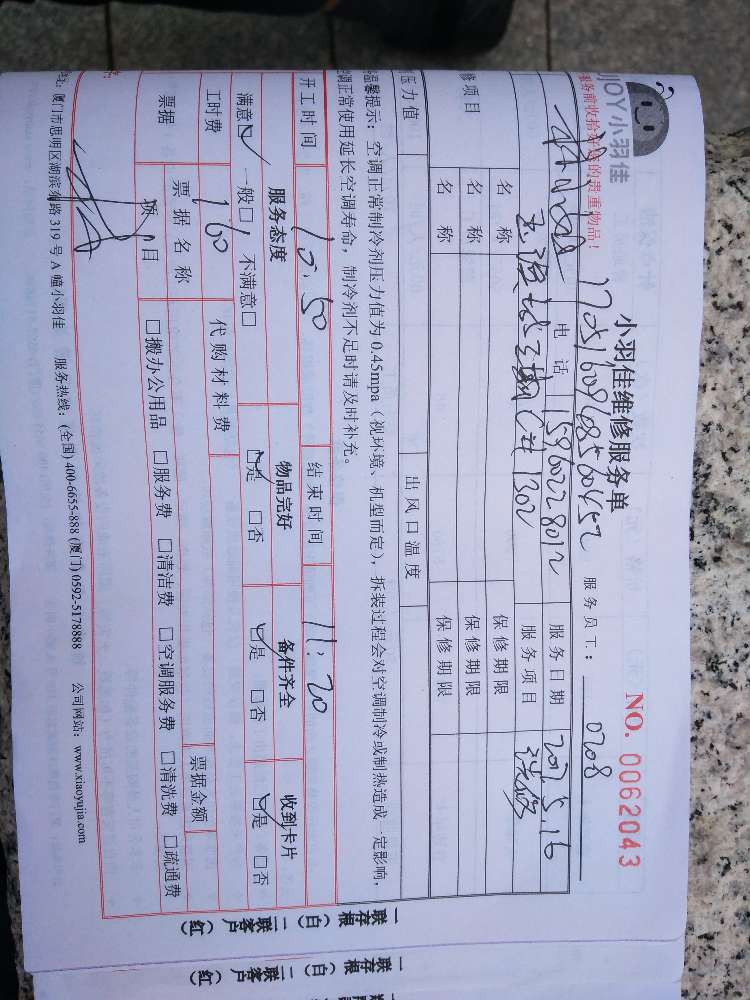 JOY小羽佳
服务前收拾好您的贵重物品！
小羽佳维修服务单
NO. 0062043
服务员工： 0708
电话 服务日期
服务项目
修项目 名称 保修期限
名称 保修期限
名称 保修期限
压力值 出风口温度
温馨提示：空调正常制冷剂压力值为 0.45mpa（视环境、机型而定），拆装过程会对空调制冷或制热造成一定影响，
正常使用延长空调寿命，制冷剂不足时请及时补充。
开工时间 10:50 结束时间 11:20
服务态度 物品完好 备件齐全 收到卡片
满意☑ 一般□ 不满意□ ☑是 □否 ☑是 □否 ☑是 □否
工时费 160 代购材料费
票据 票据名称 票据金额
项目 □搬办公用品 □服务费 □清洁费 □空调服务费 □清洗费 □疏通费
厦门市思明区湖滨南路 319 号 A 幢小羽佳 服务热线：(全国) 400-6655-688 (厦门) 0592-5178888 公司网站：www.xiaoyujia.com
一联存根（白） 二联客户（红）
一联存根（白） 二联客户（红）